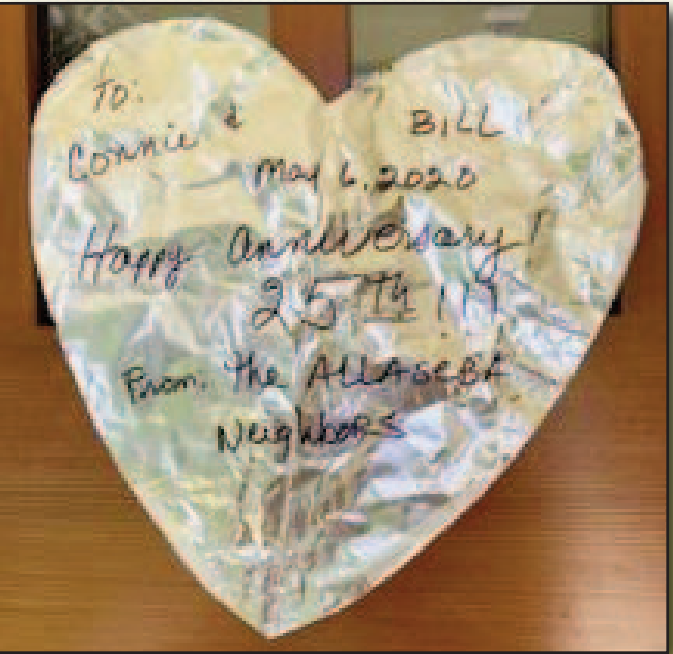 To:
Connie & BILL
May 6, 2020
Happy Anniversary!
25TH!!!
From: the ALLASEBA
Neighbors